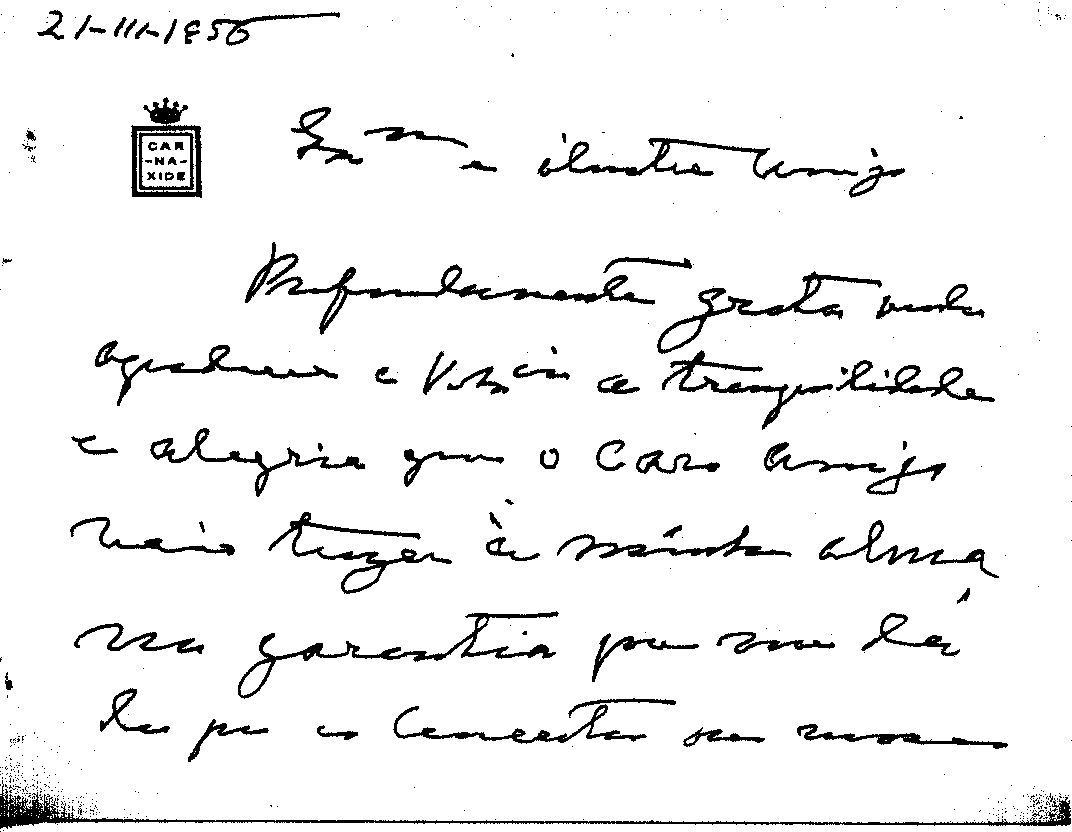 21-III-1956
CAR
-NA-
XIDE
Exmo e ilustre Amigo
Profundamente grata venho
agradecer a V. Excia a tranquilidade
e alegria que o Caro Amigo
veio trazer à minha alma
na garantia que me dá
de que os